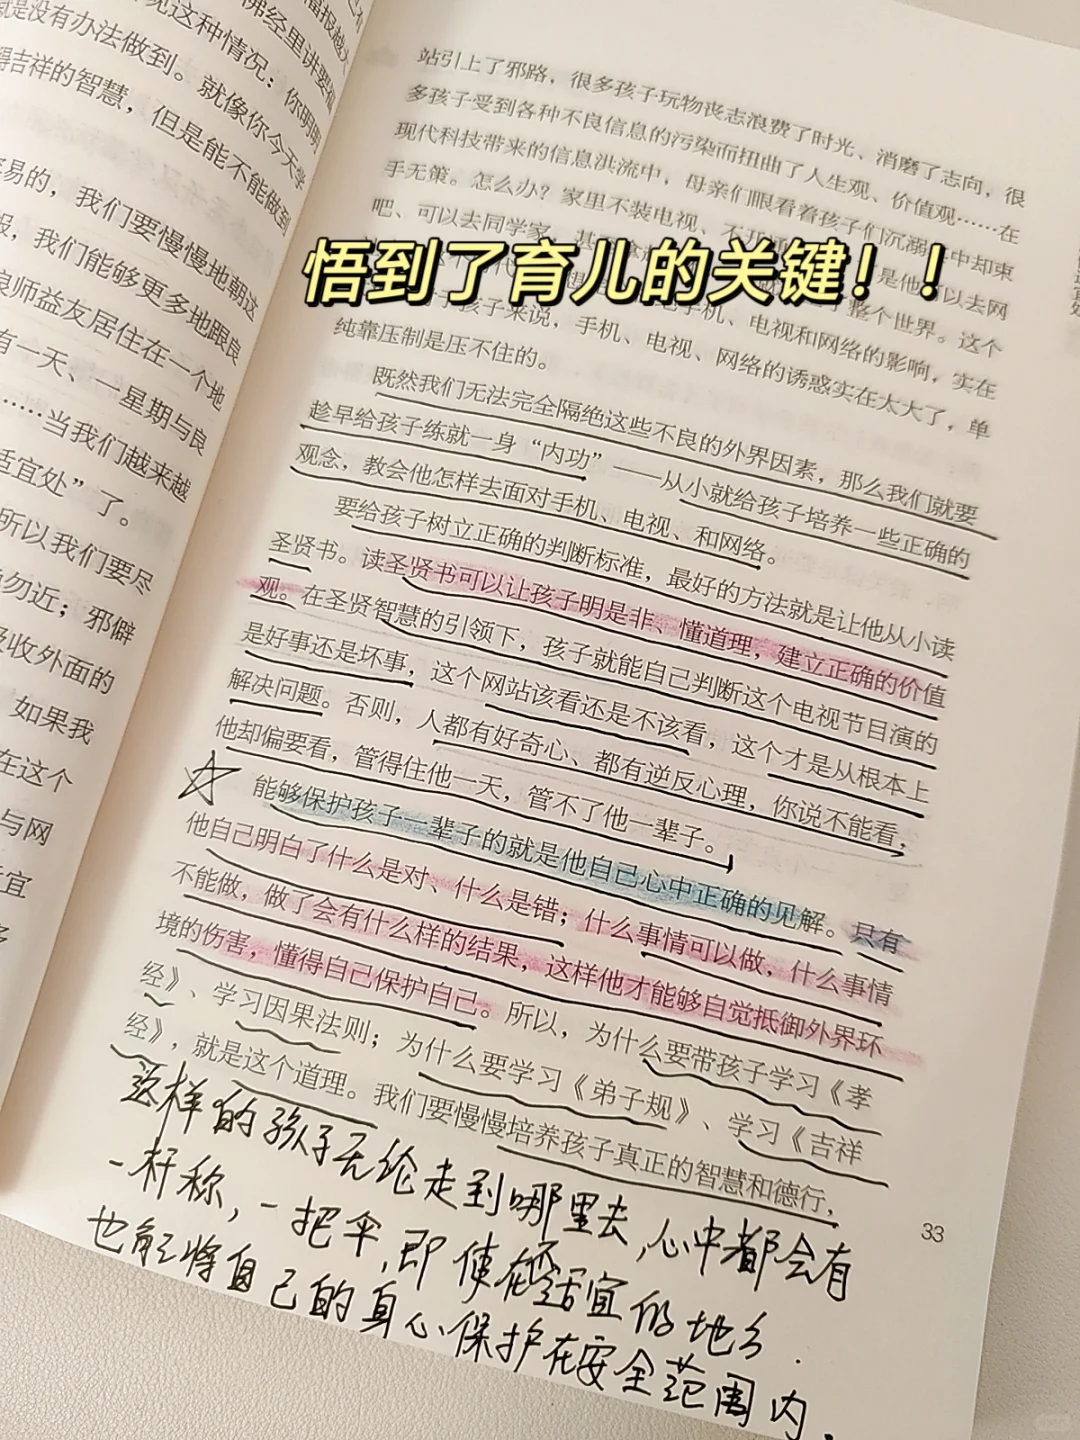 福报越大
佛经里讲要福
见这种情况：你明明
就是没有办法做到。就像你今天学
得吉祥的智慧，但是能不能做到
容易的，我们要慢慢地朝这
报，我们能够更多地跟良
良师益友居住在一个地
有一天、一星期与良
……当我们越来越
适宜处”了。
所以我们要尽
勿近；邪僻
吸收外面的
如果我
在这个
与网
适宜
多
站引上了邪路，很多孩子玩物丧志浪费了时光、消磨了志向，很
多孩子受到各种不良信息的污染而扭曲了人生观、价值观……在
现代科技带来的信息洪流中，母亲们眼看着孩子们沉溺其中却束
手无策。怎么办？家里不装电视、不开
是他可以去网
吧、可以去同学家
整个世界。这个
悟到了育儿的关键！！
手机、电视和网络的影响，实在
孩子来说，手机、电视、网络的诱惑实在太大了，单
纯靠压制是压不住的。
既然我们无法完全隔绝这些不良的外界因素，那么我们就要
趁早给孩子练就一身“内功”——从小就给孩子培养一些正确的
观念，教会他怎样去面对手机、电视、和网络。
要给孩子树立正确的判断标准，最好的方法就是让他从小读
圣贤书。读圣贤书可以让孩子明是非、懂道理，建立正确的价值
观。在圣贤智慧的引领下，孩子就能自己判断这个电视节目演的
是好事还是坏事，这个网站该看还是不该看，这个才是从根本上
解决问题。否则，人都有好奇心、都有逆反心理，你说不能看，
他却偏要看，管得住他一天，管不了他一辈子。
能够保护孩子一辈子的就是他自己心中正确的见解。只有
他自己明白了什么是对、什么是错；什么事情可以做，什么事情
不能做，做了会有什么样的结果，这样他才能够自觉抵御外界环
境的伤害，懂得自己保护自己。所以，为什么要带孩子学习《孝
经》、学习因果法则；为什么要学习《弟子规》、学习《吉祥
经》，就是这个道理。我们要慢慢培养孩子真正的智慧和德行，
这样的孩子无论走到哪里去，心中都会有
一杆称，一把伞，即使在不适宜的地方．
也能将自己的真心保护在安全范围内．
33